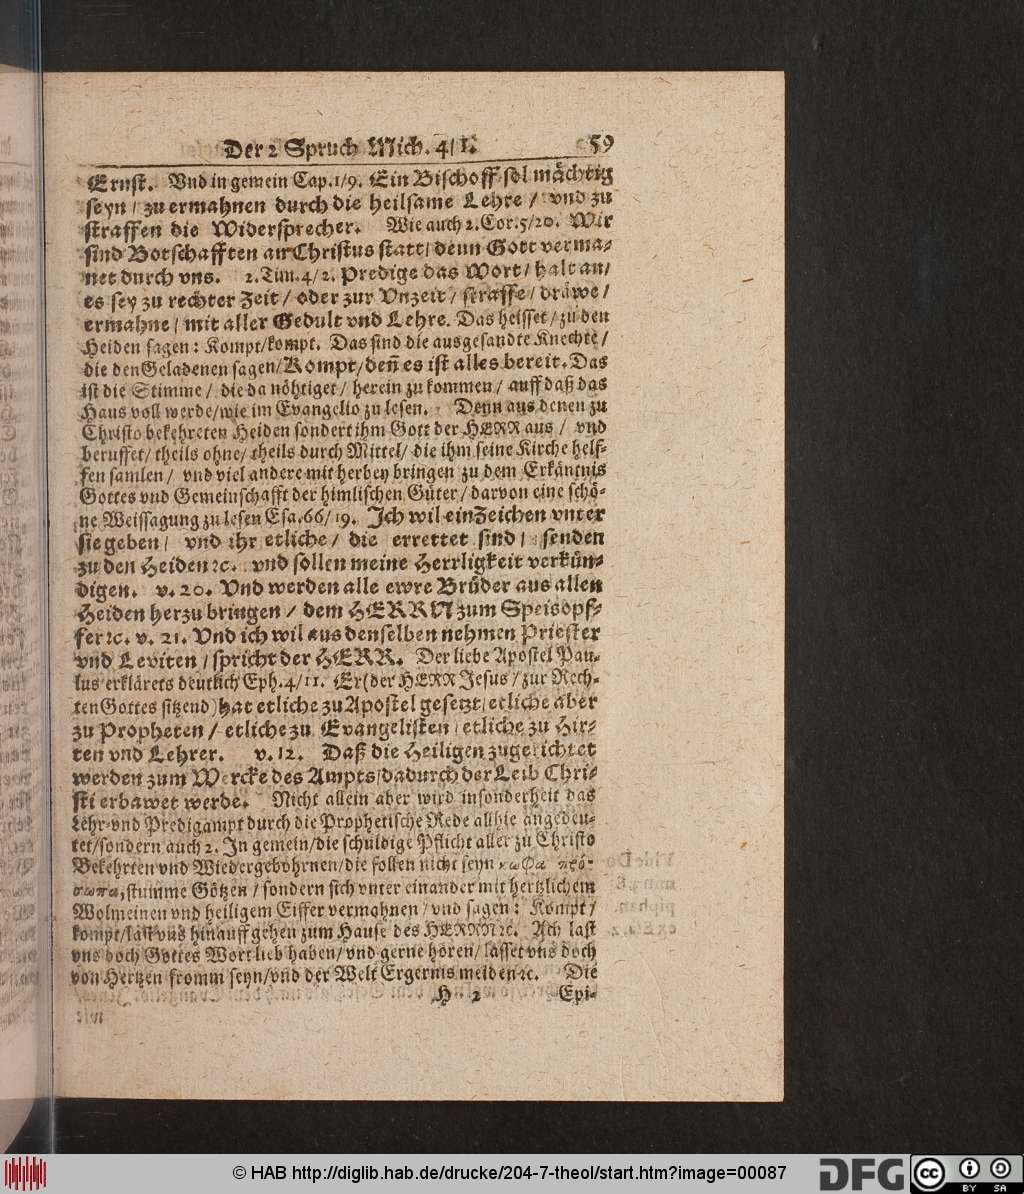 Der 2 Spruch Mich. 4/1. 59
Ernst. Vnd in gemein Cap.1/9. Ein Bischoff sol mächtig
seyn / zu ermahnen durch die heilsame Lehre / vnd zu
straffen die Widersprecher. Wie auch 2.Cor.5/20. Wir
sind Botschafften an Christus statt/ denn Gott verma-
net durch vns. 2.Tim.4/2. Predige das Wort/ halt an/
es sey zu rechter Zeit / oder zur Vnzeit / straffe / dräwe /
ermahne / mit aller Gedult vnd Lehre. Das heisset / zu den
Heiden sagen: Kompt/kompt. Das sind die ausgesandte Knechte/
die den Geladenen sagen/Kompt/deñ es ist alles bereit. Das
ist die Stimme / die da nöhtiget / herein zu kommen / auff daß das
Haus voll werde/wie im Evangelio zu lesen. Denn aus denen zu
Christo bekehreten Heiden sondert ihm Gott der HERR aus / vnd
beruffet/ theils ohne/ theils durch Mittel/ die ihm seine Kirche helf-
fen samlen / vnd viel andere mit herbey bringen zu dem Erkäntnis
Gottes vnd Gemeinschafft der himlischen Güter / darvon eine schö-
ne Weissagung zu lesen Esa.66/19. Ich wil ein Zeichen vnter
sie geben / vnd ihr etliche / die errettet sind / senden
zu den Heiden ꝛc. vnd sollen meine Herrligkeit verkün-
digen. v. 20. Vnd werden alle ewre Brüder aus allen
Heiden herzu bringen / dem HERRN zum Speisopf-
fer ꝛc. v. 21. Vnd ich wil aus denselben nehmen Priester
vnd Leviten / spricht der HERR. Der liebe Apostel Pau-
lus erklärets deutlich Eph.4/11. Er (der HERR Jesus / zur Rech-
ten Gottes sitzend) hat etliche zu Apostel gesetzt/ etliche aber
zu Propheten / etliche zu Evangelisten / etliche zu Hir-
ten vnd Lehrer. v. 12. Daß die Heiligen zugerichtet
werden zum Wercke des Ampts/dadurch der Leib Chri-
sti erbawet werde. Nicht allein aber wird insonderheit das
Lehr- vnd Predigampt durch die Prophetische Rede allhie angedeu-
tet/sondern auch 2. In gemein/die schüldige Pflicht aller zu Christo
Bekehrten vnd Wiedergebohrnen/die sollen nicht seyn κωφὰ πρό-
σωπα, stumme Götzen / sondern sich vnter einander mit hertzlichem
Wolmeinen vnd heiligem Eiffer vermahnen / vnd sagen: Kompt /
kompt/last vns hinauff gehen zum Hause des HERRN ꝛc. Ach last
vns doch Gottes Wort lieb haben/ vnd gerne hören / lasset vns doch
von Hertzen fromm seyn/vnd der Welt Ergernis meiden ꝛc. Die
H 2 Epi-
© HAB http://diglib.hab.de/drucke/204-7-theol/start.htm?image=00087 DFG cc BY SA